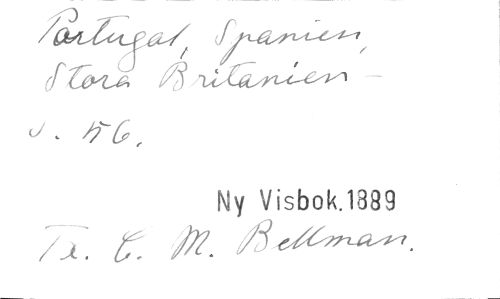 Portugal, Spanien,
Stora Britanien –
s. 56.
Ny Visbok.1889
Tr. C. M. Bellman.